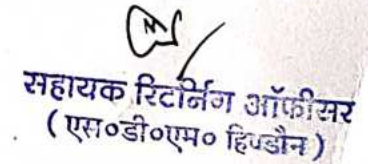 सहायक रिटर्निग ऑफीसर
( एस०डी०एम० हिण्डौन )